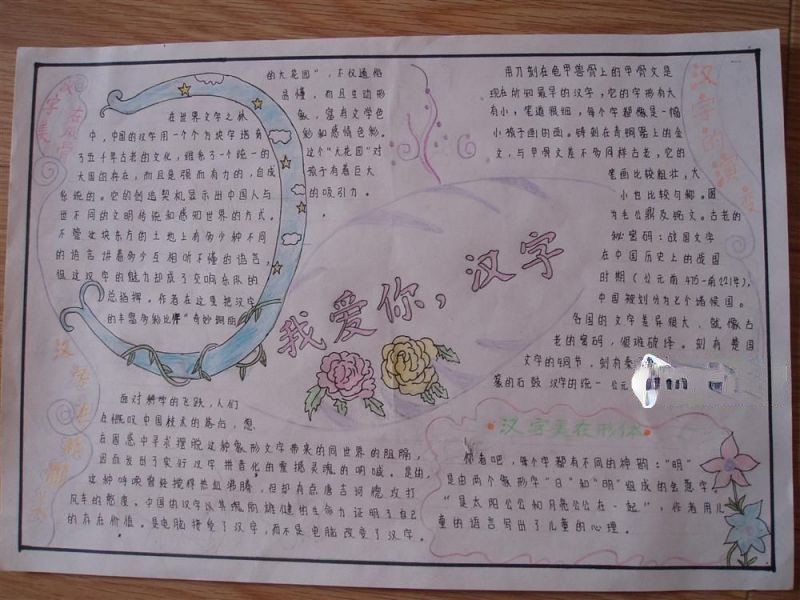 在世界文字之林
中，中国的汉字用一个个方块字培育
了五千年古老的文化，维系了一个统一的
大国的存在，而且是强而有力的，自成
系统的。它的创造契机显示出中国人与
世不同的文明传统和感知世界的方式。
不管这块东方的土地上有多少种不同
的语言 讲着多少互相听不懂的语言，
但这汉字的魅力却成了交响乐队的
总指挥。作者在这里把汉字
的丰富多彩比作"奇妙绚丽
的大花园"，不仅通俗
易懂，而且生动形
象，富有文学色
彩和感情色彩。
这个"大花园"对
孩子有着巨大
的吸引力。
用刀刻在龟甲兽骨上的甲骨文是
现在所知最早的汉字，它的字形有大
有小，笔道很细，每个字都像是一幅
小孩子画的画。铸刻在青铜器上的金
文，与甲骨文差不多同样古老，它的
笔画比较粗壮，大
小也比较匀称。图
为毛公鼎及铭文。古老的
秘密码：战国文字
在中国历史上的战国
时期（公元前475-前221年），
中国规划分为七个诸候国。
各国的文字差异很大，就像古
老的密码，很难破译。刻有楚国
文字的铜节，刻有秦
篆的石鼓 汉字的统一 公元
我爱你，汉字
面对科学的飞跃，人们
在慨叹中国技术的落后，想
在困惑中寻求摆脱这种象形文字带来的同世界的阻隔，
因而发出了实行汉字拼音化的震撼灵魂的呐喊。是的，
这种呼唤曾经搅得热血沸腾，但却有点唐吉诃德攻打
风车的憨度。中国的汉字以其 雄健的生命力证明了自己
的存在价值。是电脑接受了汉字，而不是电脑改变了汉字。
汉字美在形体
你看吧，每个字都有不同的神韵："明"
是由两个象形字"日"和"明"组成的会意字。
"是太阳公公和月亮公公在一起"，作者用儿
童的语言写出了儿童的心理。
汉字的演变